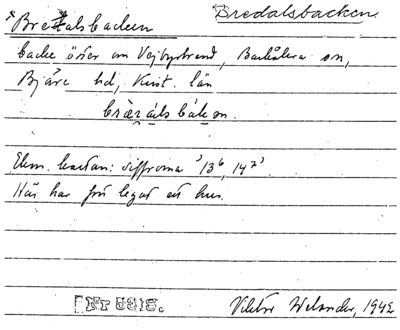 Bredalsbacken
*Bredalsbacken
backe öster om Vejbystrand, Barkåkra sn,
Bjäre hd, Krist. län
Ekon. kartan: siffrorna '13⁶, 14⁷'
Här har förr legat ett hus.
Nr 5818.
Viktor Welander, 1942